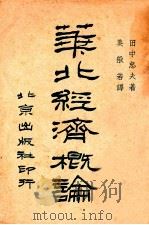 田中忠夫著
姜般若譯
華北經濟概論
北京出版社印行
www.duxiu.com